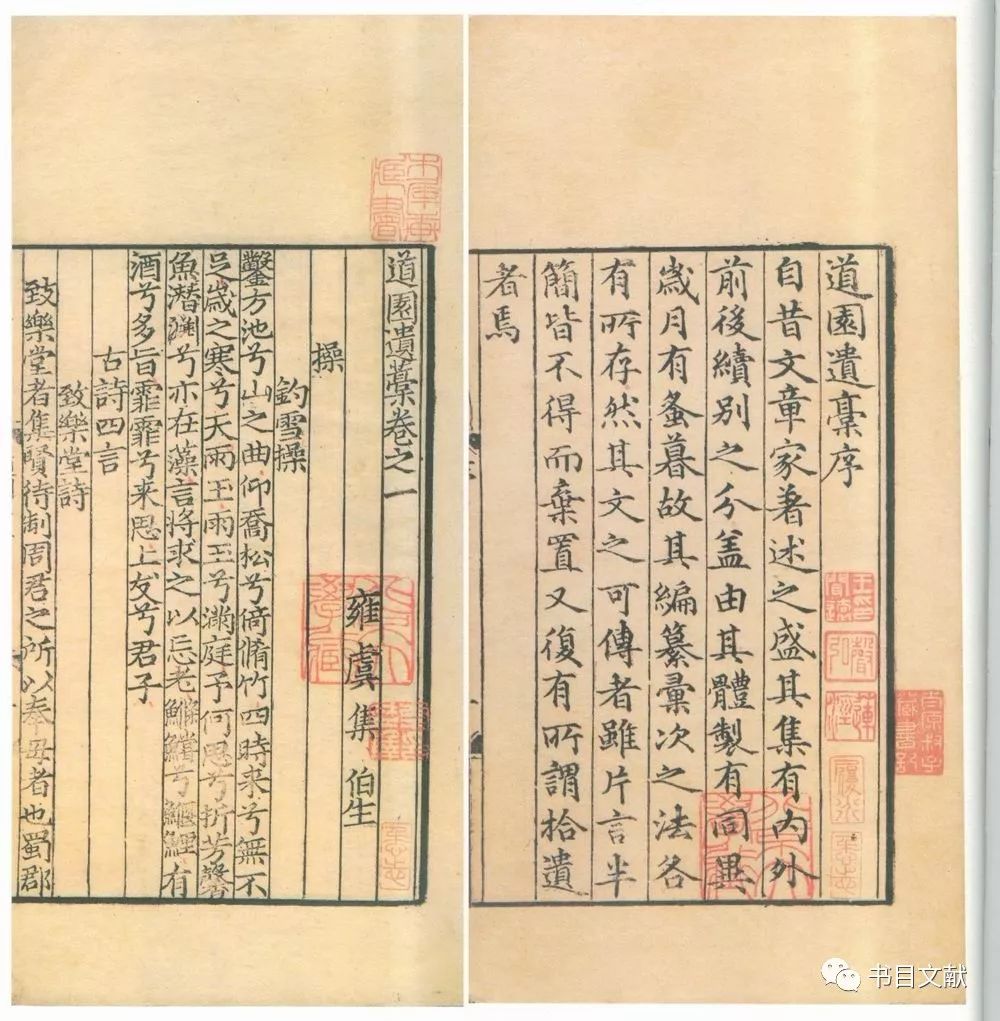 道園遺稾序
自昔文章家著述之盛其集有内外
前後續別之分盖由其體製有同異
歲月有蚤暮故其編纂彙次之法各
有所存然其文之可傳者雖片言半
簡皆不得而棄置又復有所謂拾遺
者焉
道園遺藁卷之一
雍虞集伯生
操
釣雪操
鑿方池兮山之曲仰喬松兮倚脩竹四時来兮無不
足歲之寒兮天雨玉雨玉兮滿庭予何思兮折芳馨
魚潜淵兮亦在藻言將求之以忘老鱨兮鰋鯉有
酒兮多旨霏霏兮来思上友兮君子
古詩四言
致樂堂詩
致樂堂者集賢待制周君之所以奉毋者也蜀郡
书目文献